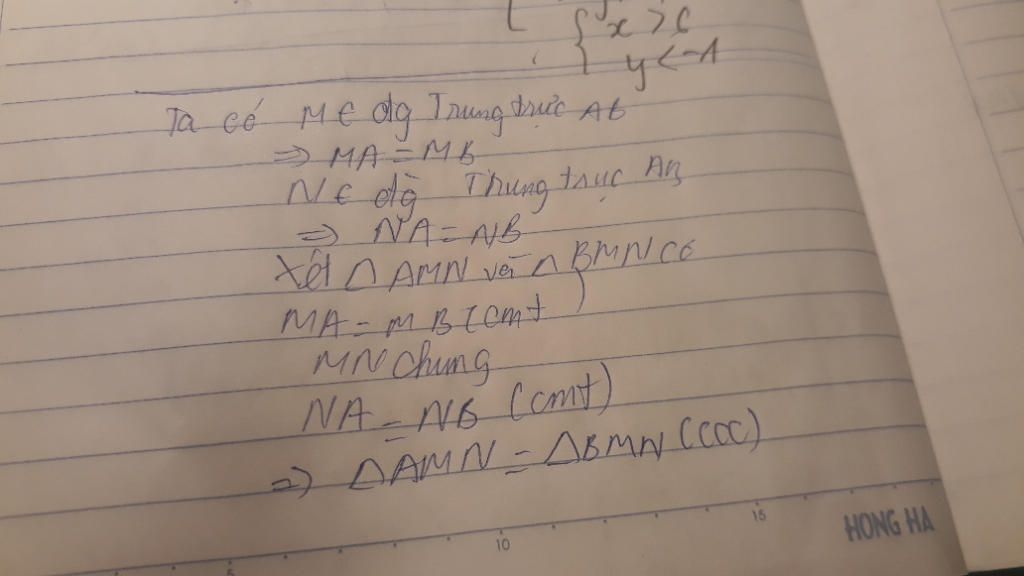 x > 6
y < -1
Ta có M ∈ đg Trung trực AB
=> MA = MB
N ∈ đg Trung trực AB
=> NA = NB
Xét △ AMN và △ BMN có
MA = MB (cmt)
MN chung
NA = NB (cmt)
=> △AMN = △BMN (ccc)
5 10 15
HONG HA